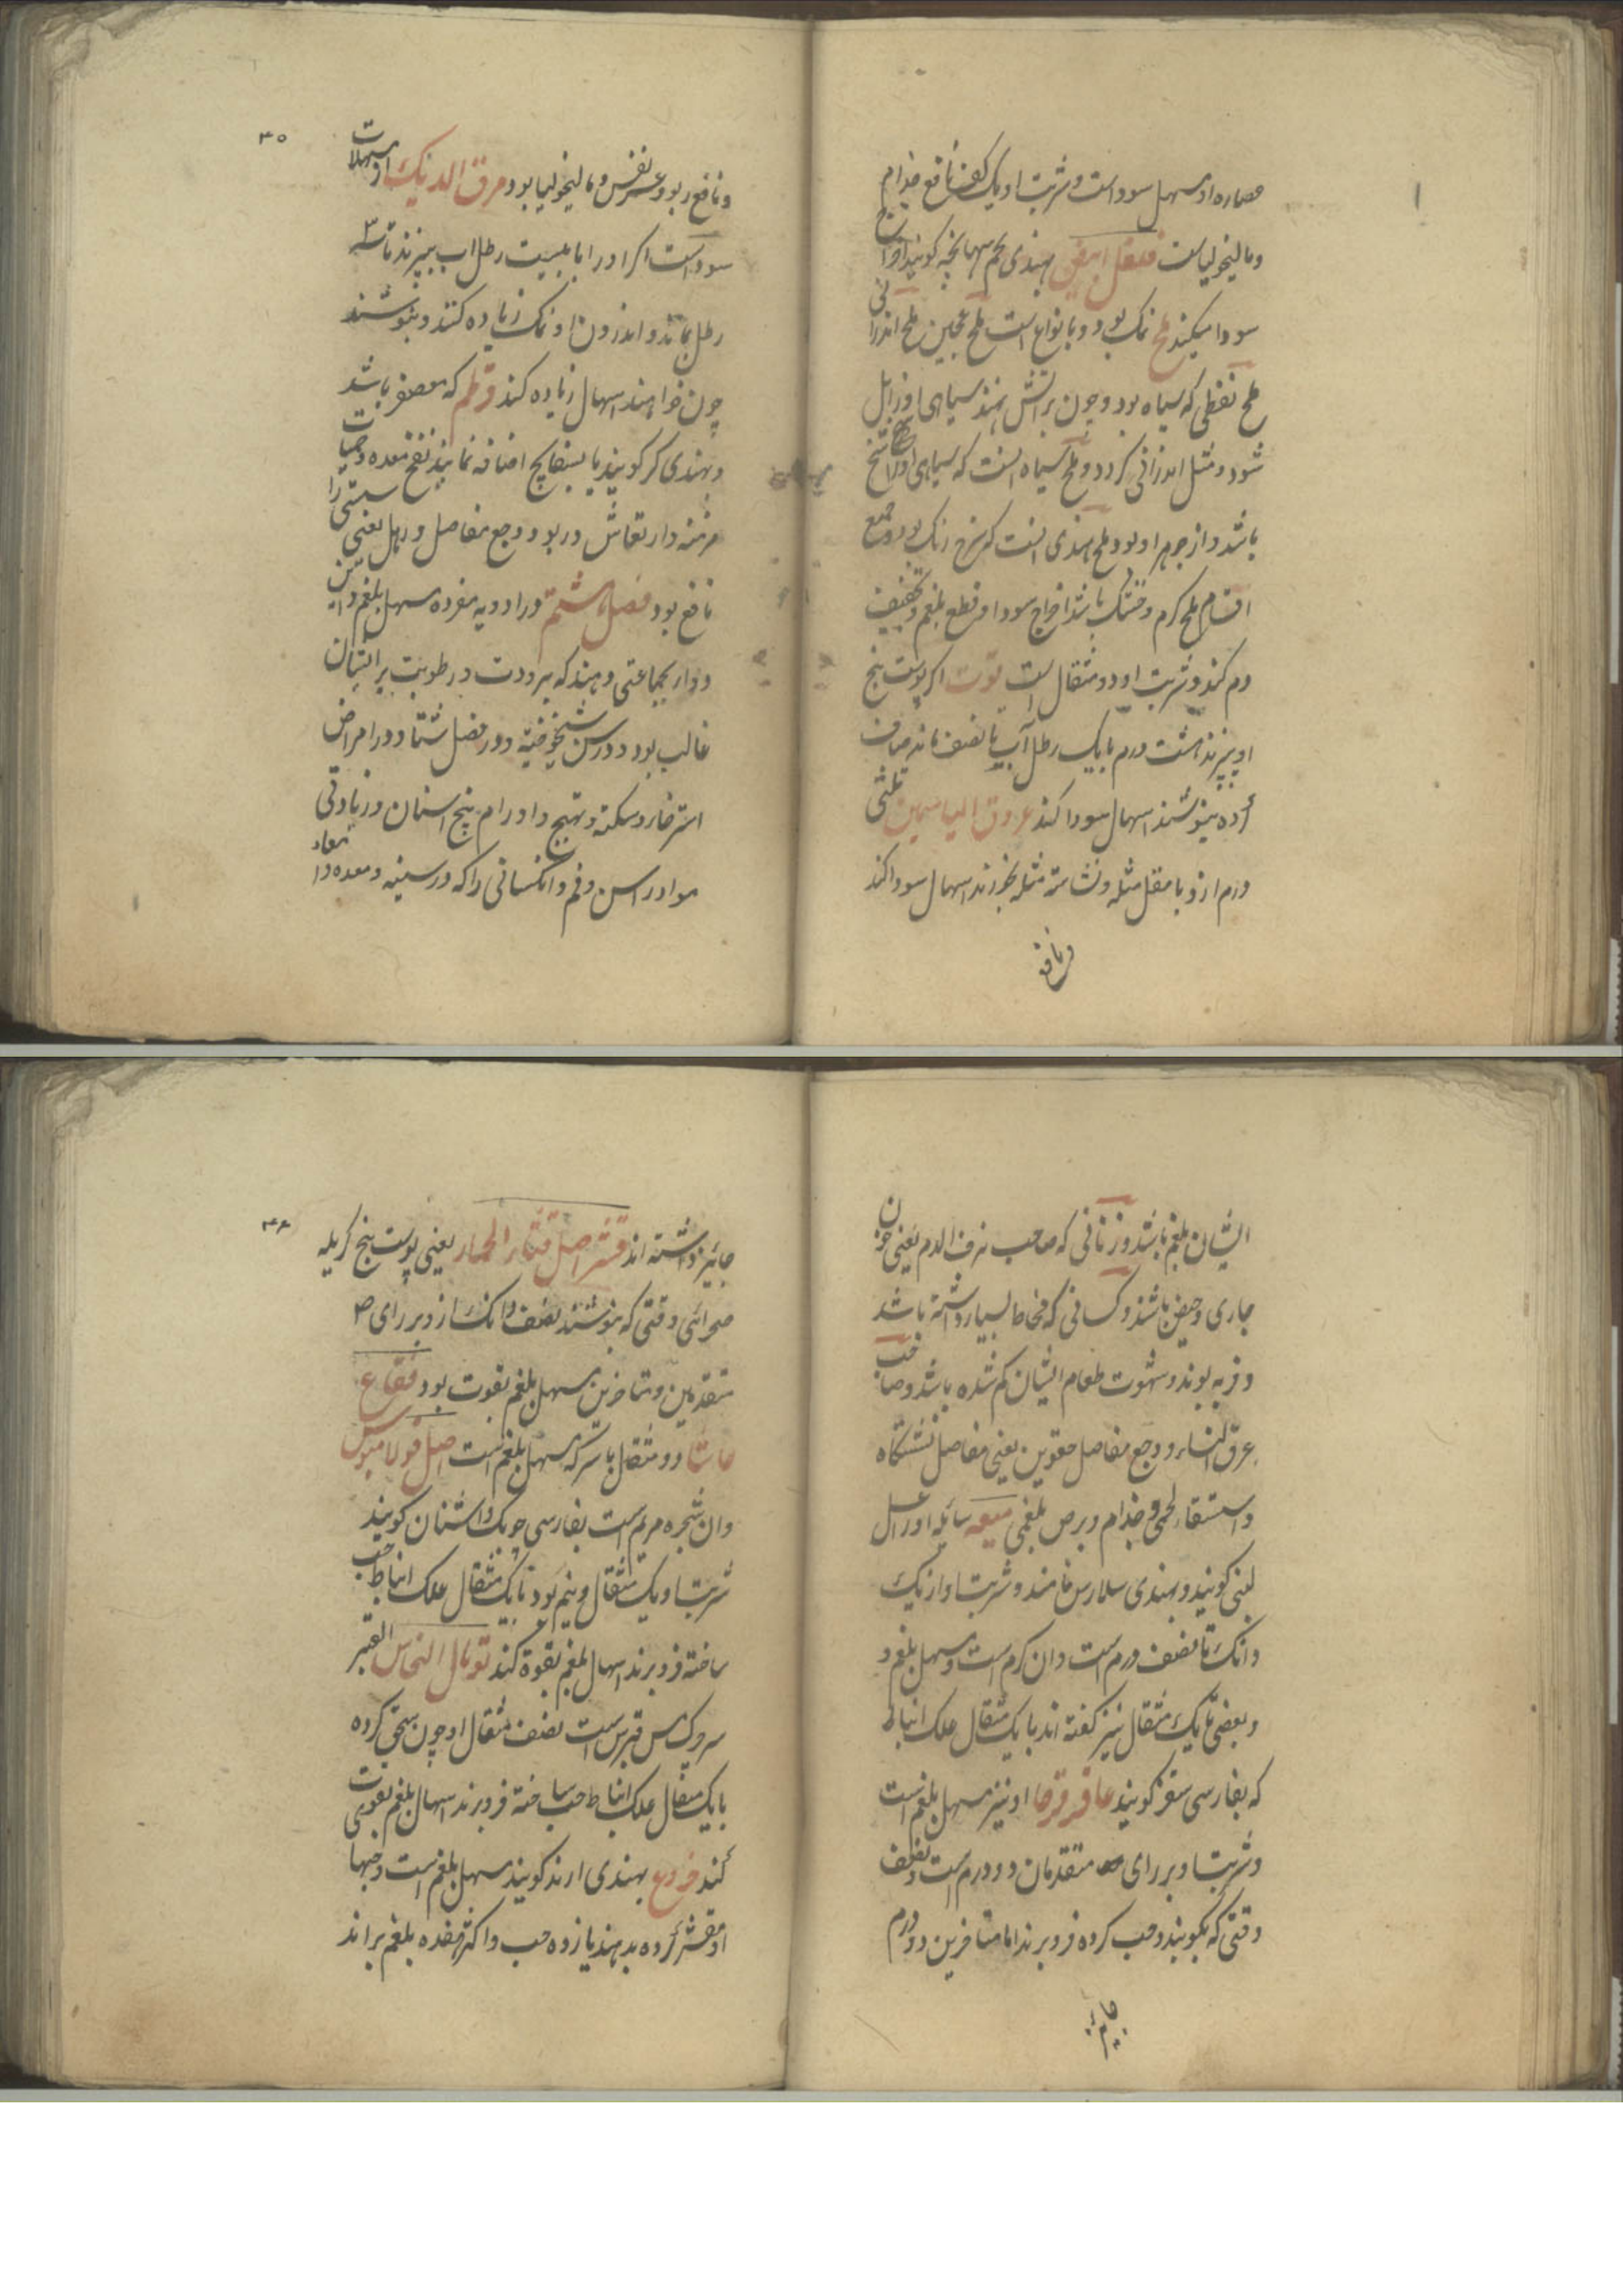 عصاره او مسهل سوداست و شربت او یک کف نافع جذام
و مالیخولیاست فلفل ابیض بهندی تخم سهانجنه گویند اخراج
سودا میکند ملح نمک بود و بانواع است ملح عجین ملح اندرانی
ملح نفطی که سیاه بود و چون بر آتش نهند سیاهی او زایل
شود و مثل اندرانی گردد و ملح سیاه انست که سیاهی او
باشد و از جوهر او بود و ملح هندی انست که سرخ رنگ بود و جمیع
اقسام ملح گرم و خشک باشد اخراج سودا و قطع بلغم و تجفیف
دم کند و شربت او دو مثقال است توت اگر پوست بیخ
او بپزند هشت درم با یک رطل آب تا نصف ماند صاف
کرده بنوشند اسهال سودا کند عروق الیاسمین ثلثی
درم ازو با مقل مثله و نشاسته مثله بخورند اسهال سودا کند
و نافع
۳۵
و نافع ربو و عسر نفس و مالیخولیا بود مرق الدیک از مسهلات
سوداست اگر او را با بیست رطل اب بپزند تا سه ۳
رطل بماند و اندرون او نمک زیاده کنند و بنوشند
چون خواهند اسهال زیاده کند قرطم که معصفر باشد
و بهندی کر گویند با بسفایج اضافه نمایند نفخ معده و حمیات
مزمنه و ارتعاش و ربو و وجع مفاصل و رهل یعنی سستی را
نافع بود فصل هشتم در ادویه مفرده مسهل بلغم و این
دوا بجماعتی دهند که برودت و رطوبت بر ایشان
غالب بود و در سن شیخوخیة و در فصل شتا و در امراض
استرخا و سکته و تهیج و اورام بیخ اسنان و زیادتی
مواد راس و فم و انکسانی را که در سینه و معده و امعاء
ایشان بلغم باشد و زنانی که صاحب نزف الدم یعنی خون
جاری و حیض باشند و کسانی که مخاط بسیار داشته باشد
و فربه بوند و شهوت طعام ایشان کم شده باشد و صاحب
عرق النساء و وجع مفاصل حقوین یعنی مفاصل نشستگاه
و استسقاء لحمی و جذام و برص بلغمی میعه سایله او را عسل
لبنی گویند و بهندی سلارس نامند و شربت او از یک
دانک تا نصف درم است و ان گرم است و مسهل بلغم و
و بعضی تا یک مثقال نیز گفته اند با یک مثقال علک انباط
که بفارسی سقز گویند عاقرقرحا او نیز مسهل بلغم است
و شربت او بر رای متقدمان دو درم است و نصف
وقتی که بکوبند و حب کرده فرو برند اما متاخرین دو درم
جایز
۳۶
جایز داشته اند قشر اصل قثاء الحمار یعنی پوست بیخ کریله
صحرائی وقتی که بنوشند نصف دانک ازو بر رای
متقدمین و متاخرین مسهل بلغم بقوت بود فقاع
حاشا دو مثقال با سرکه مسهل بلغم است اصل فولامینوس
و ان شجره مریم است بفارسی چوبک اشنان گویند
شربت او یک مثقال و نیم بود با یک مثقال علک انباط حب
ساخته فرو برند اسهال بلغم بقوة کند توبال النحاس القبر
سروک مس قبرس است نصف مثقال او چون سحق کرده
با یک مثقال علک انباط حب ساخته فرو برند اسهال بلغم بقوت
کند خروع بهندی ارند گویند مسهل بلغم است و حبها
او مقشر کرده بدهند یازده حب و اکثر هفده بلغم براند